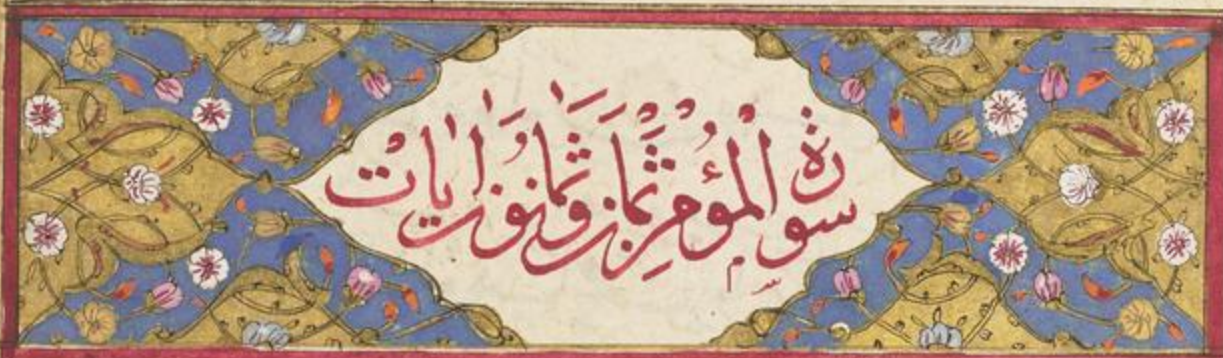 سورة المؤمن ثمان وثمانون ايات